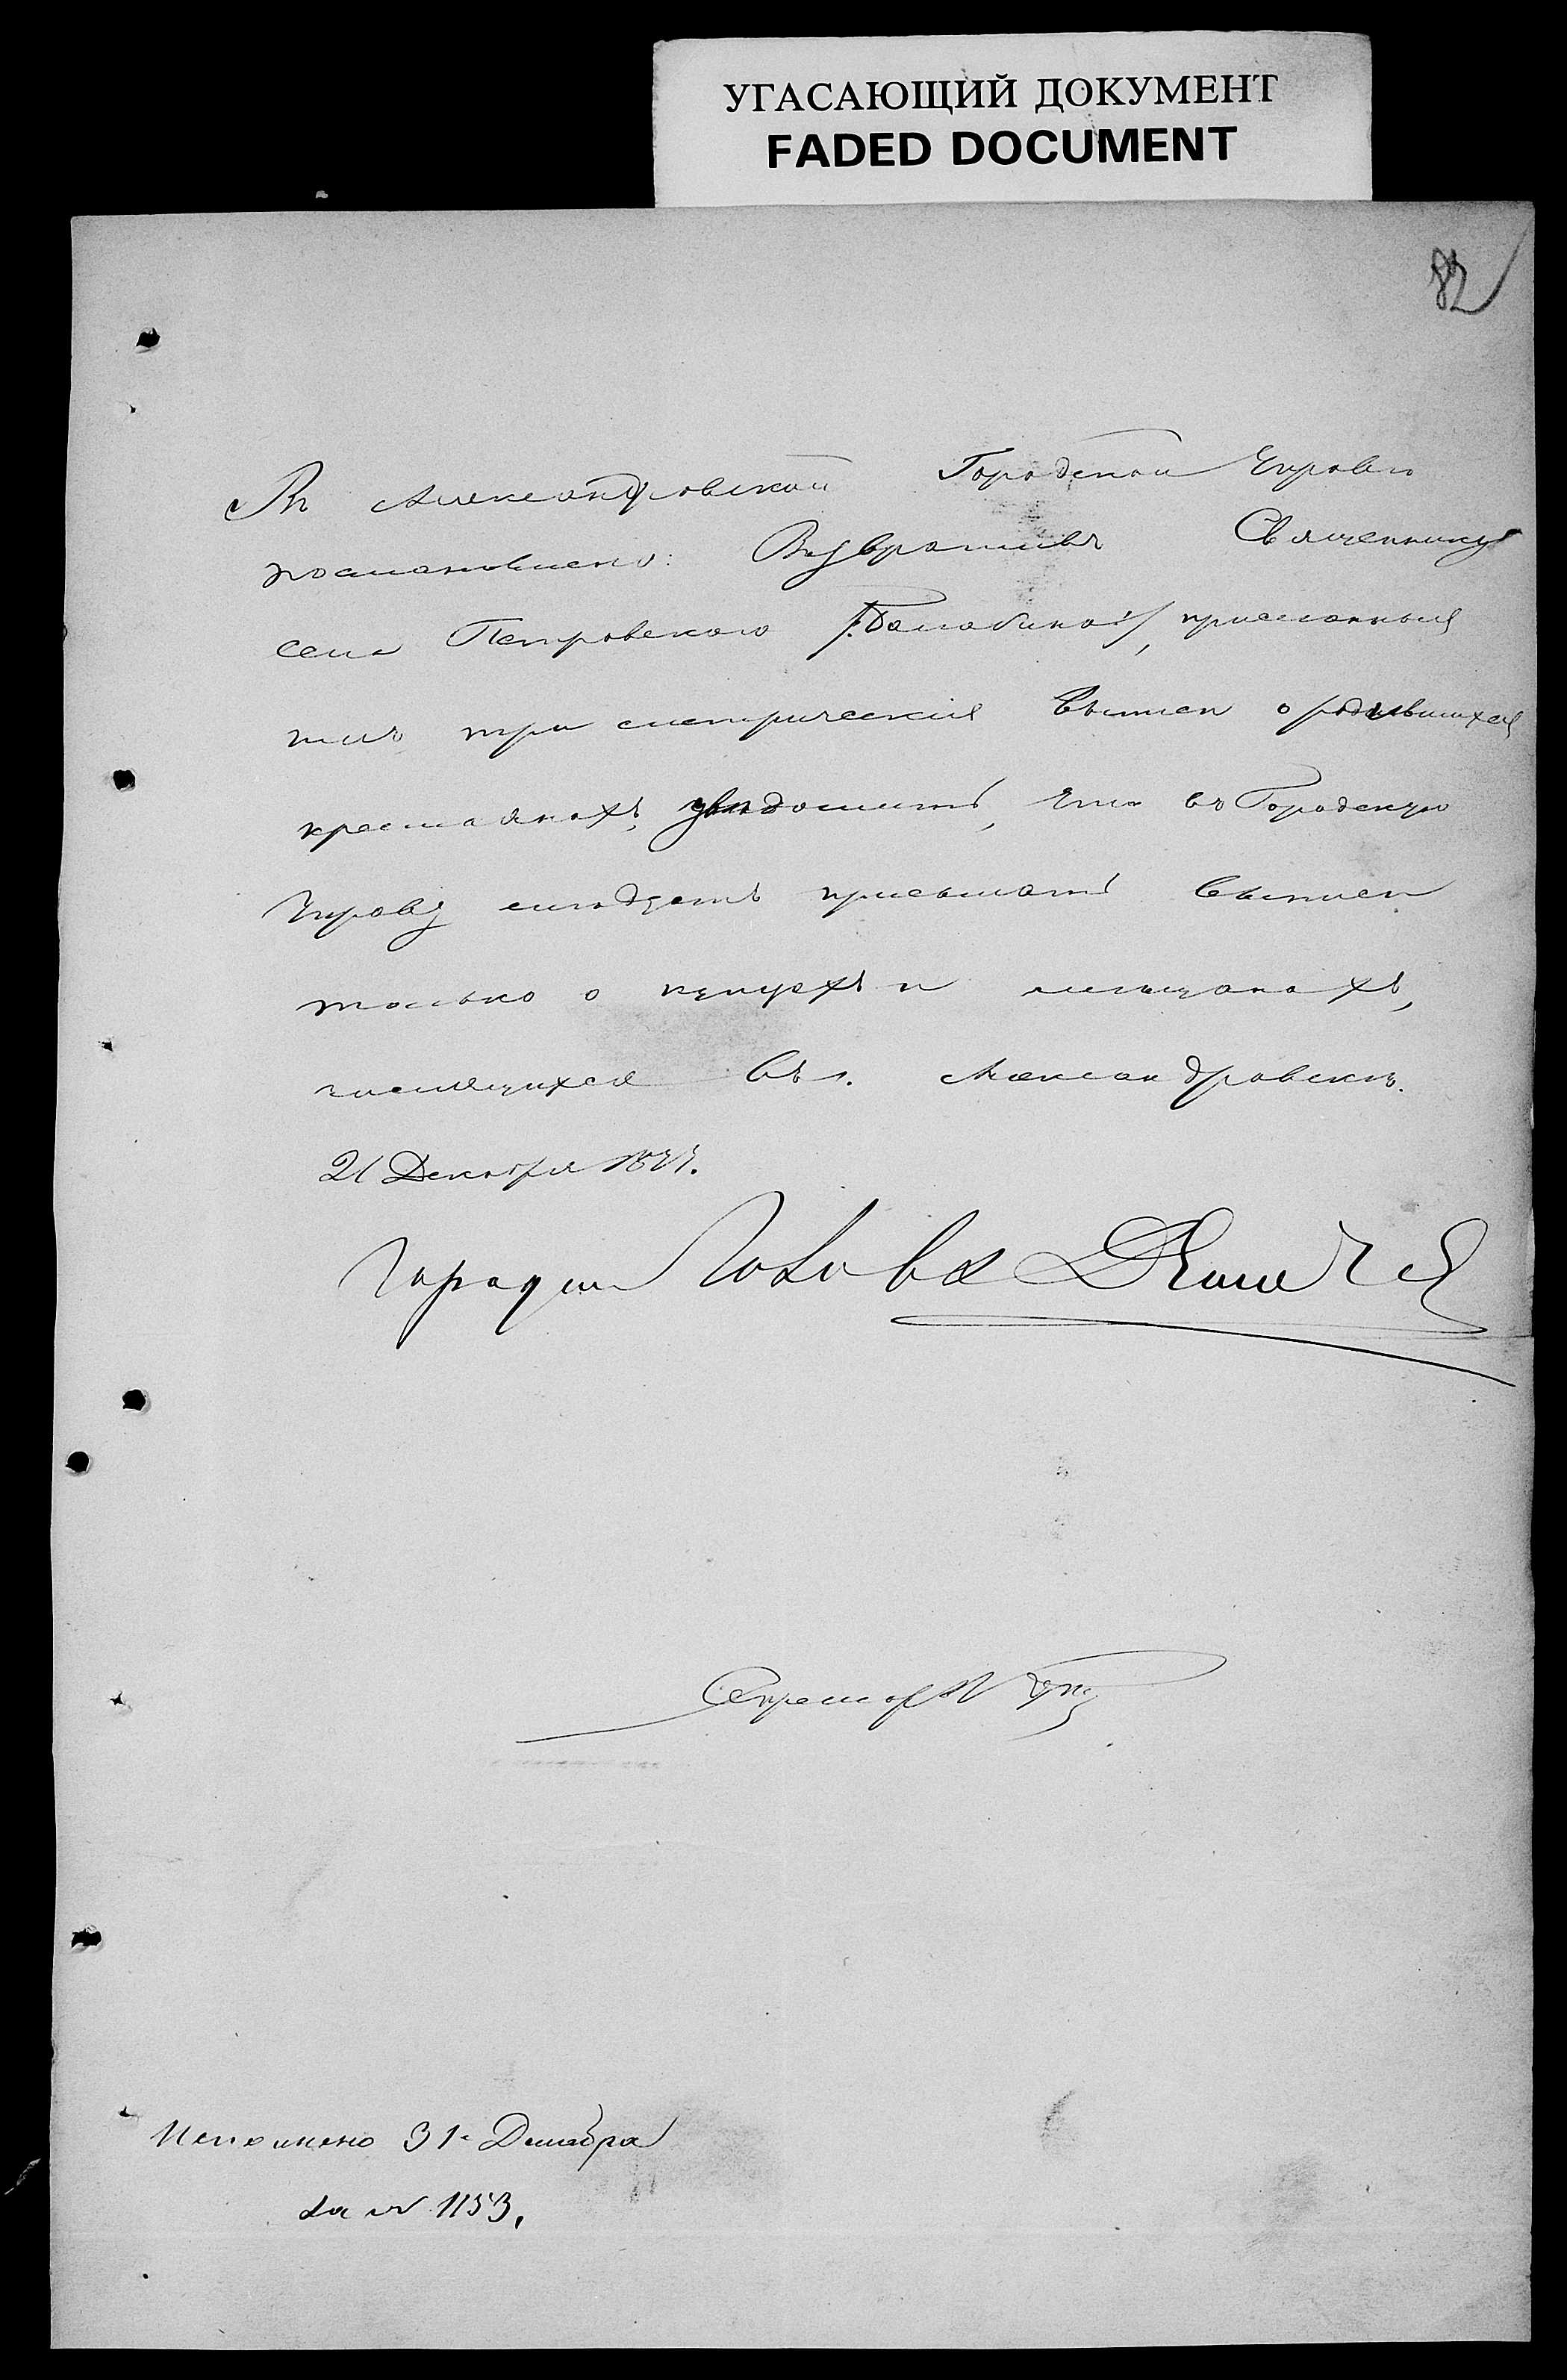 УГАСАЮЩИЙ ДОКУМЕНТ
FADED DOCUMENT
82
Въ Александровской Городской Управѣ
постановлено: Возвративъ Священнику
села Петровскаго /:Балабина:/, присланныя
имъ три метрическія выписи о родившихся
крестьянахъ, увѣдомить, что въ Городскую
Управу слѣдуетъ присылать выписи
только о купцахъ и мѣщанахъ,
числящихся въ г. Александровскѣ.
21 Декабря 1877.
Городской Голова
Секретарь
Исполнено 31 Декабря
за № 1153.